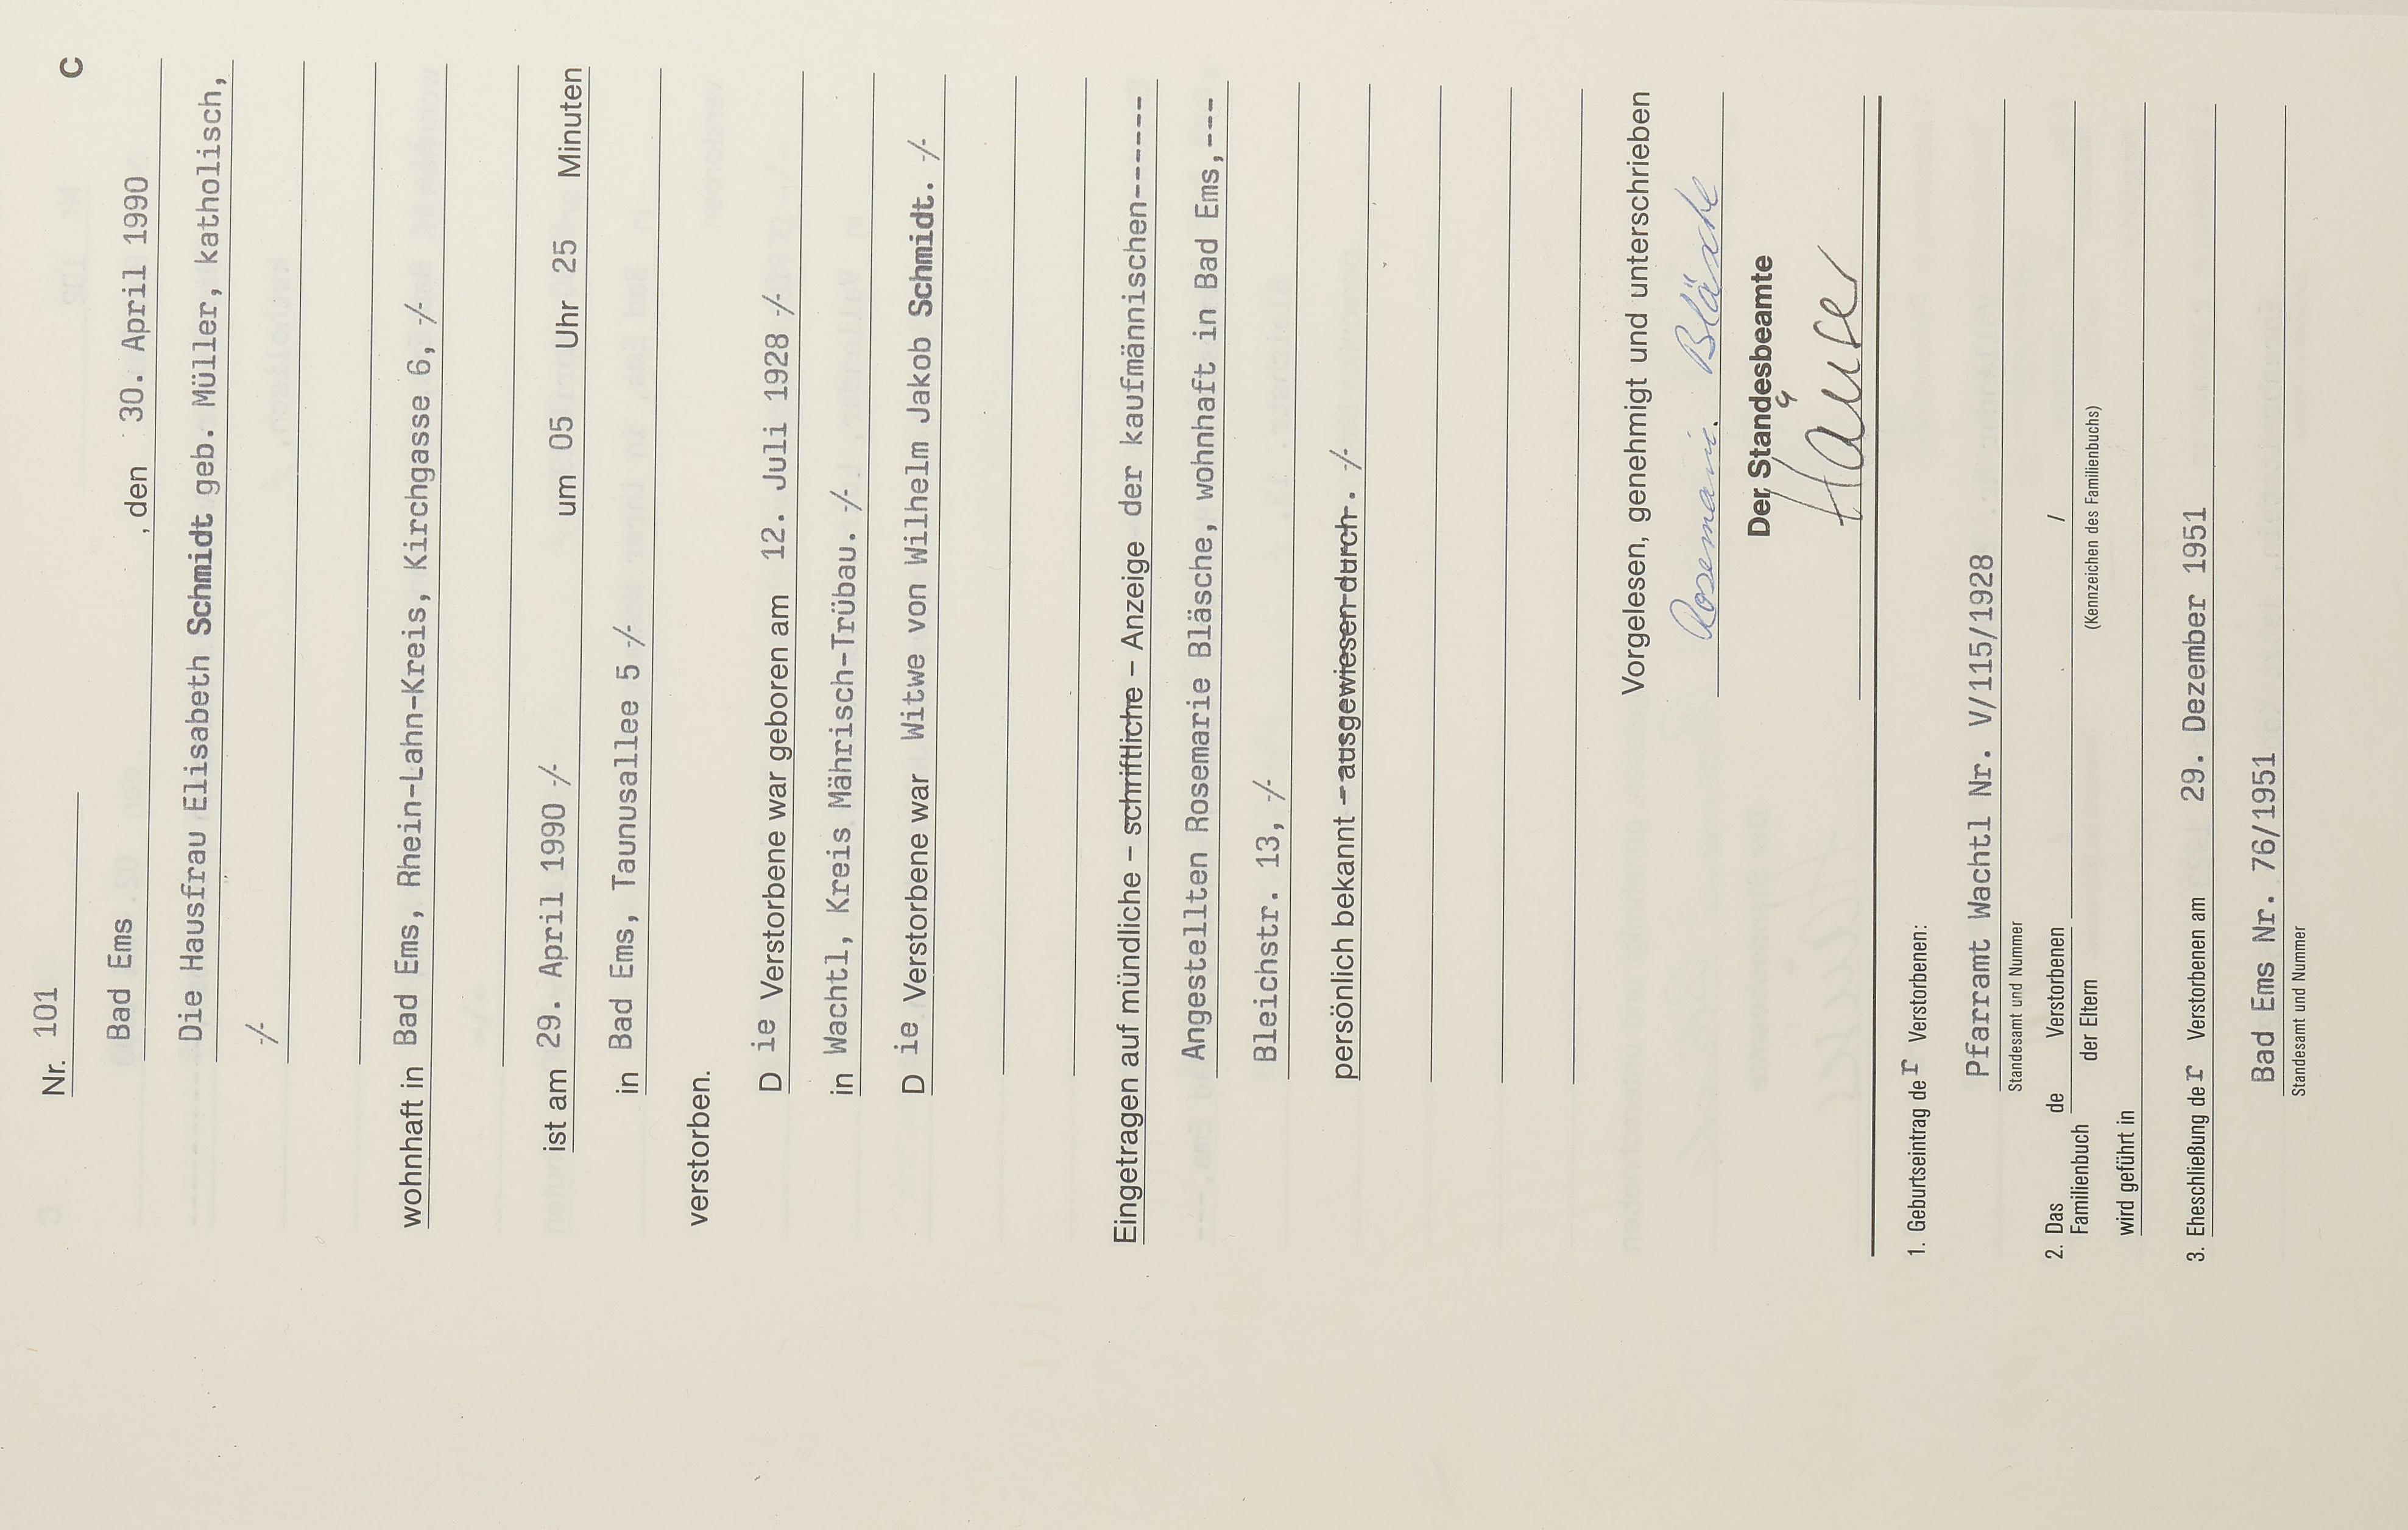 C
Nr. 101
Bad Ems , den 30. April 1990
Die Hausfrau Elisabeth Schmidt geb. Müller, katholisch,
-/-
wohnhaft in Bad Ems, Rhein-Lahn-Kreis, Kirchgasse 6, -/-
ist am 29. April 1990 -/- um 05 Uhr 25 Minuten
in Bad Ems, Taunusallee 5 -/-
verstorben.
D ie Verstorbene war geboren am 12. Juli 1928 -/-
in Wachtl, Kreis Mährisch-Trübau. -/-
D ie Verstorbene war Witwe von Wilhelm Jakob Schmidt. -/-
Eingetragen auf mündliche – schriftliche – Anzeige der kaufmännischen------
Angestellten Rosemarie Bläsche, wohnhaft in Bad Ems,---
Bleichstr. 13, -/-
persönlich bekannt – ausgewiesen durch . -/-
Vorgelesen, genehmigt und unterschrieben
Rosemarie Bläsche
Der Standesbeamte
Häuser
1. Geburtseintrag de r Verstorbenen:
Pfarramt Wachtl Nr. V/115/1928
Standesamt und Nummer
2. Das Familienbuch de Verstorbenen /
der Eltern (Kennzeichen des Familienbuchs)
wird geführt in
3. Eheschließung de r Verstorbenen am 29. Dezember 1951
Bad Ems Nr. 76/1951
Standesamt und Nummer